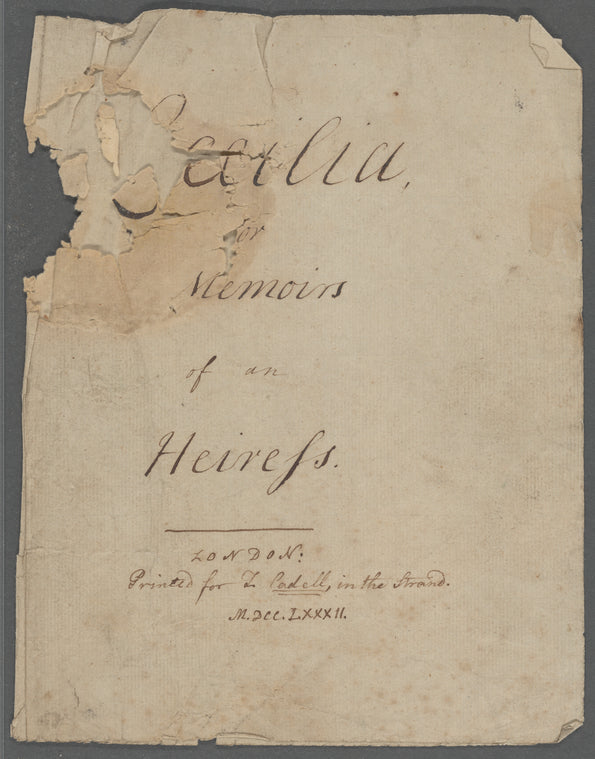 Cecilia,
or
Memoirs
of an
Heireſs.
LONDON:
Printed for T. Cadell, in the Strand.
M.DCC.LXXXII.